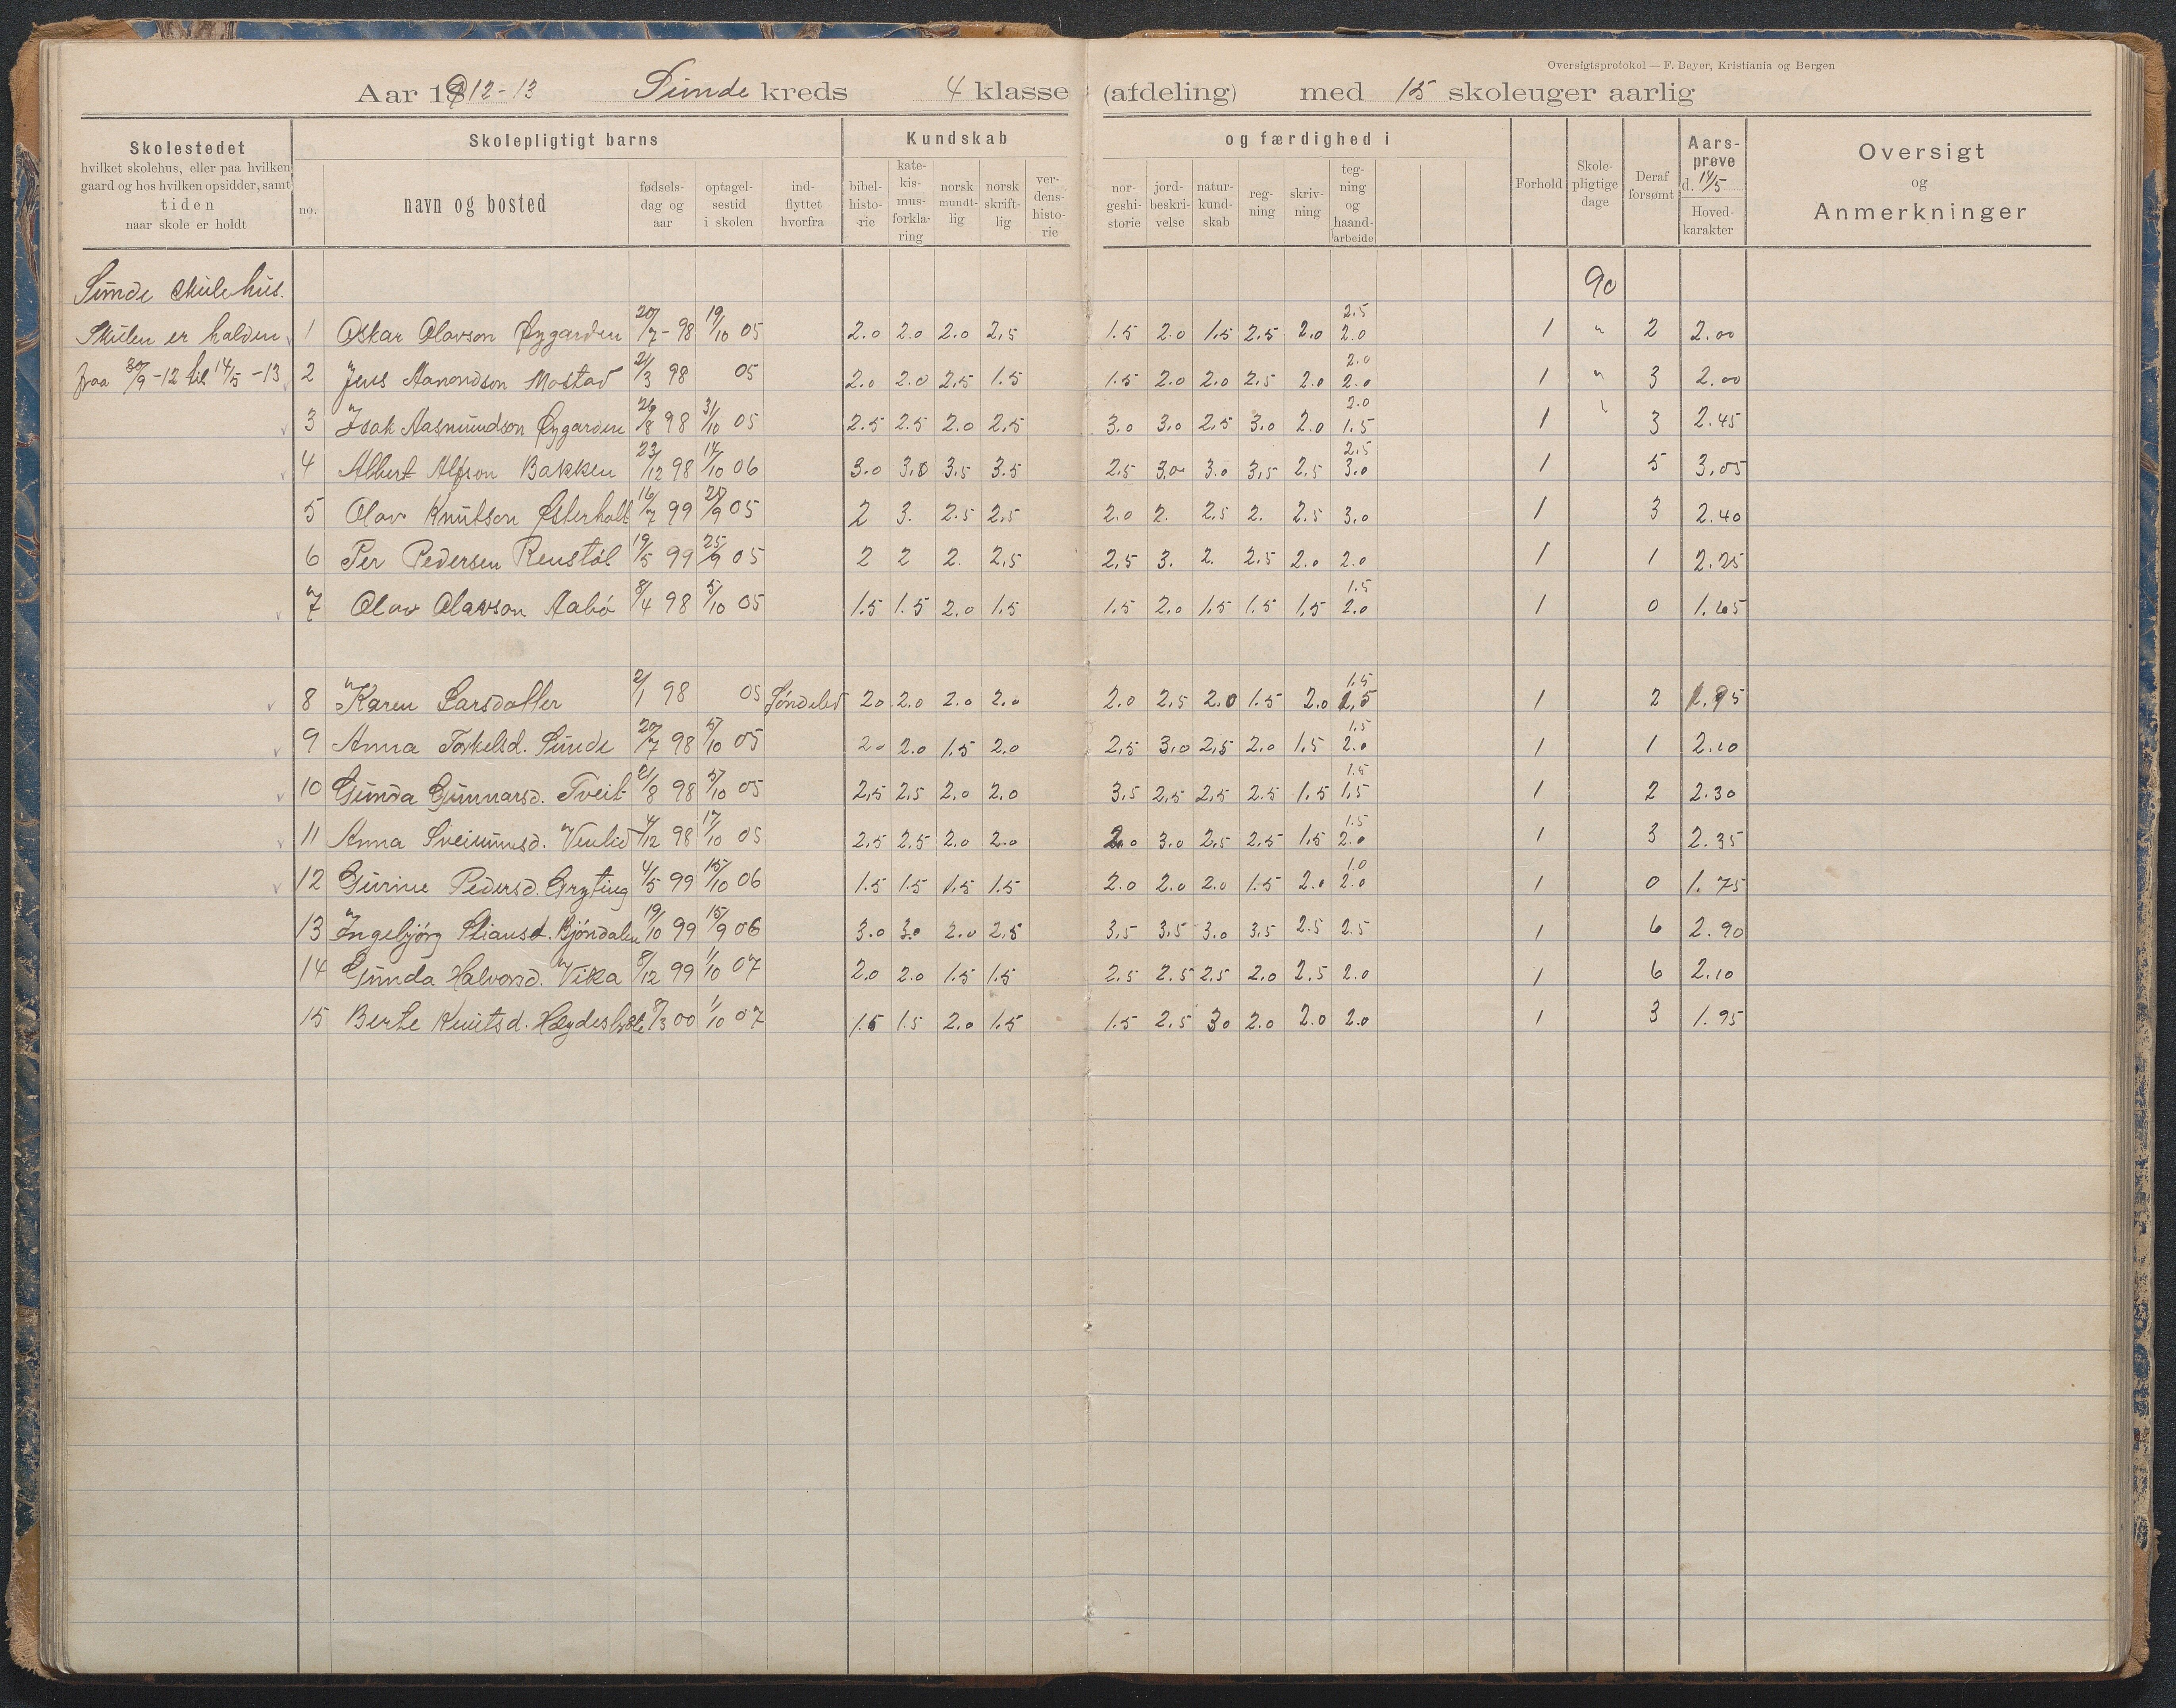 Oversigtsprotokol — F. Beyer, Kristiania og Bergen
Aar 1912-13 Sunde kreds 4 klasse (afdeling) med 15 skoleuger aarlig
Skolestedet
hvilket skolehus, eller paa hvilken
gaard og hos hvilken opsidder, samt
tiden
naar skole er holdt
Skolepligtigt barns
no.
navn og bosted
fødsels-
dag og
aar
optagel-
sestid
i skolen
ind-
flyttet
hvorfra
Kundskab
bibel-
histo-
-rie
kate-
kis-
mus-
forkla-
ring
norsk
mundt-
lig
norsk
skrift-
lig
ver-
dens-
histo-
rie
og færdighed i
nor-
geshi-
storie
jord-
beskri-
velse
natur-
kund-
skab
reg-
ning
skriv-
ning
teg-
ning
og
haand-
arbeide
Forhold
Skole-
pligtige
dage
Deraf
forsømt
Aars-
prøve
d. 14/5
Hoved-
karakter
Oversigt
og
Anmerkninger
Sunde skulehus. 90
Skulen er halden 1 Oskar Olavson Øygarden 20/7-98 19/10 05 2.0 2.0 2.0 2,5 1.5 2.0 1.5 2.5 2.0 2.5 2.0 1 " 2 2.00
fraa 30/9-12 til 14/5-13 2 Jens Aanondson Mostad 21/3 98 05 2.0 2.0 2,5 1.5 1.5 2.0 2.0 2,5 2.0 2.0 2.0 1 " 3 2.00
3 Isak Aasmundson Øygarden 26/8 98 31/10 05 2.5 2.5 2.0 2,5 3.0 3,0 2,5 3.0 2.0 2.0 1.5 1 3 2.45
4 Albert Alfson Bakken 23/12 98 14/10 06 3.0 3.0 3,5 3.5 2,5 3,0 3.0 3,5 2,5 2,5 3.0 1 5 3,05
5 Olav Knutson Østerholt 16/7 99 28/9 05 2 3. 2.5 2,5 2.0 2. 2,5 2. 2.5 3,0 1 3 2.40
6 Per Pedersen Renstøl 19/5 99 25/9 05 2 2 2. 2,5 2,5 3. 2. 2.5 2.0 2.0 1 1 2.25
7 Olav Olavson Aabø 8/4 98 5/10 05 1.5 1.5 2.0 1.5 1.5 2.0 1.5 1.5 1,5 1.5 2.0 1 0 1.65
8 Karen Larsdatter 2/1 98 05 Søndeled 2.0 2.0 2.0 2.0 2.0 2,5 2.0 1.5 2.0 1.5 1,5 1 2 1.95
9 Anna Torkelsd. Sunde 20/7 98 5/10 05 2.0 2.0 1.5 2.0 2,5 3,0 2,5 2,0 1,5 1.5 2.0 1 1 2.10
10 Gunda Gunnarsd. Tveit 21/8 98 5/10 05 2,5 2,5 2.0 2.0 3,5 2,5 2,5 2.5 1.5 1.5 1.5 1 2 2.30
11 Anna Sveinunsd. Venlid 4/12 98 17/10 05 2,5 2,5 2.0 2.0 2.0 3,0 2,5 2,5 1,5 1.5 2.0 1 3 2.35
12 Gurine Pedersd. Gryting 4/5 99 15/10 06 1.5 1.5 1.5 1.5 2.0 2.0 2.0 1.5 2.0 1.0 2.0 1 0 1.75
13 Ingebjörg Stiansd. Bjöndalen 19/10 99 15/9 06 3.0 3.0 2.0 2,5 3,5 3,5 3.0 3,5 2.5 2.5 1 6 2.90
14 Gunda Halvorsd. Vika 8/12 99 1/10 07 2.0 2.0 1.5 1.5 2,5 2.5 2.5 2.0 2.5 2.0 1 6 2.10
15 Berte Knutsd. 8/3 00 1/10 07 1.5 1.5 2.0 1.5 1.5 2.5 3.0 2.0 2.0 2.0 1 3 1.95